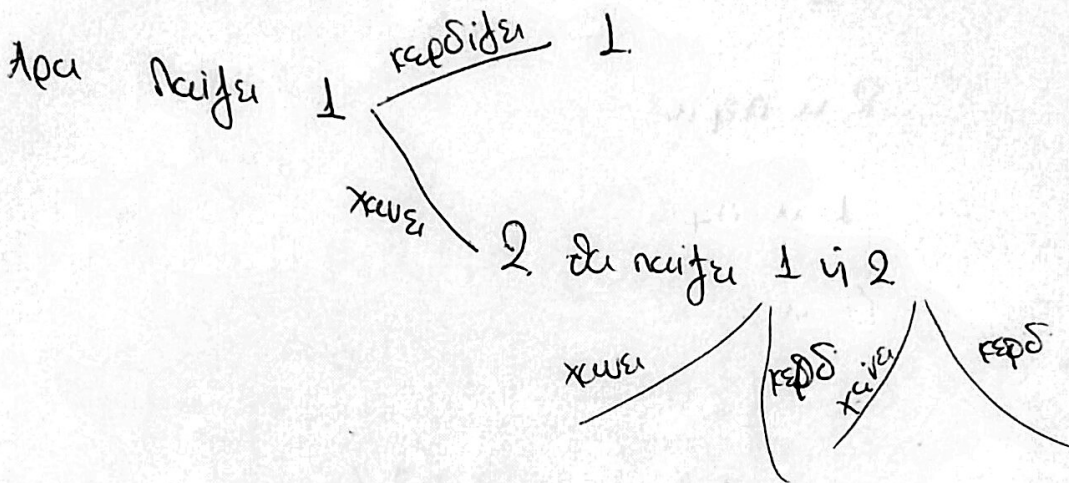 Άρα παίζει 1 κερδίζει 1
χάνει
2 θα παίζει 1 ή 2
χάνει κερδ χάνει κερδ